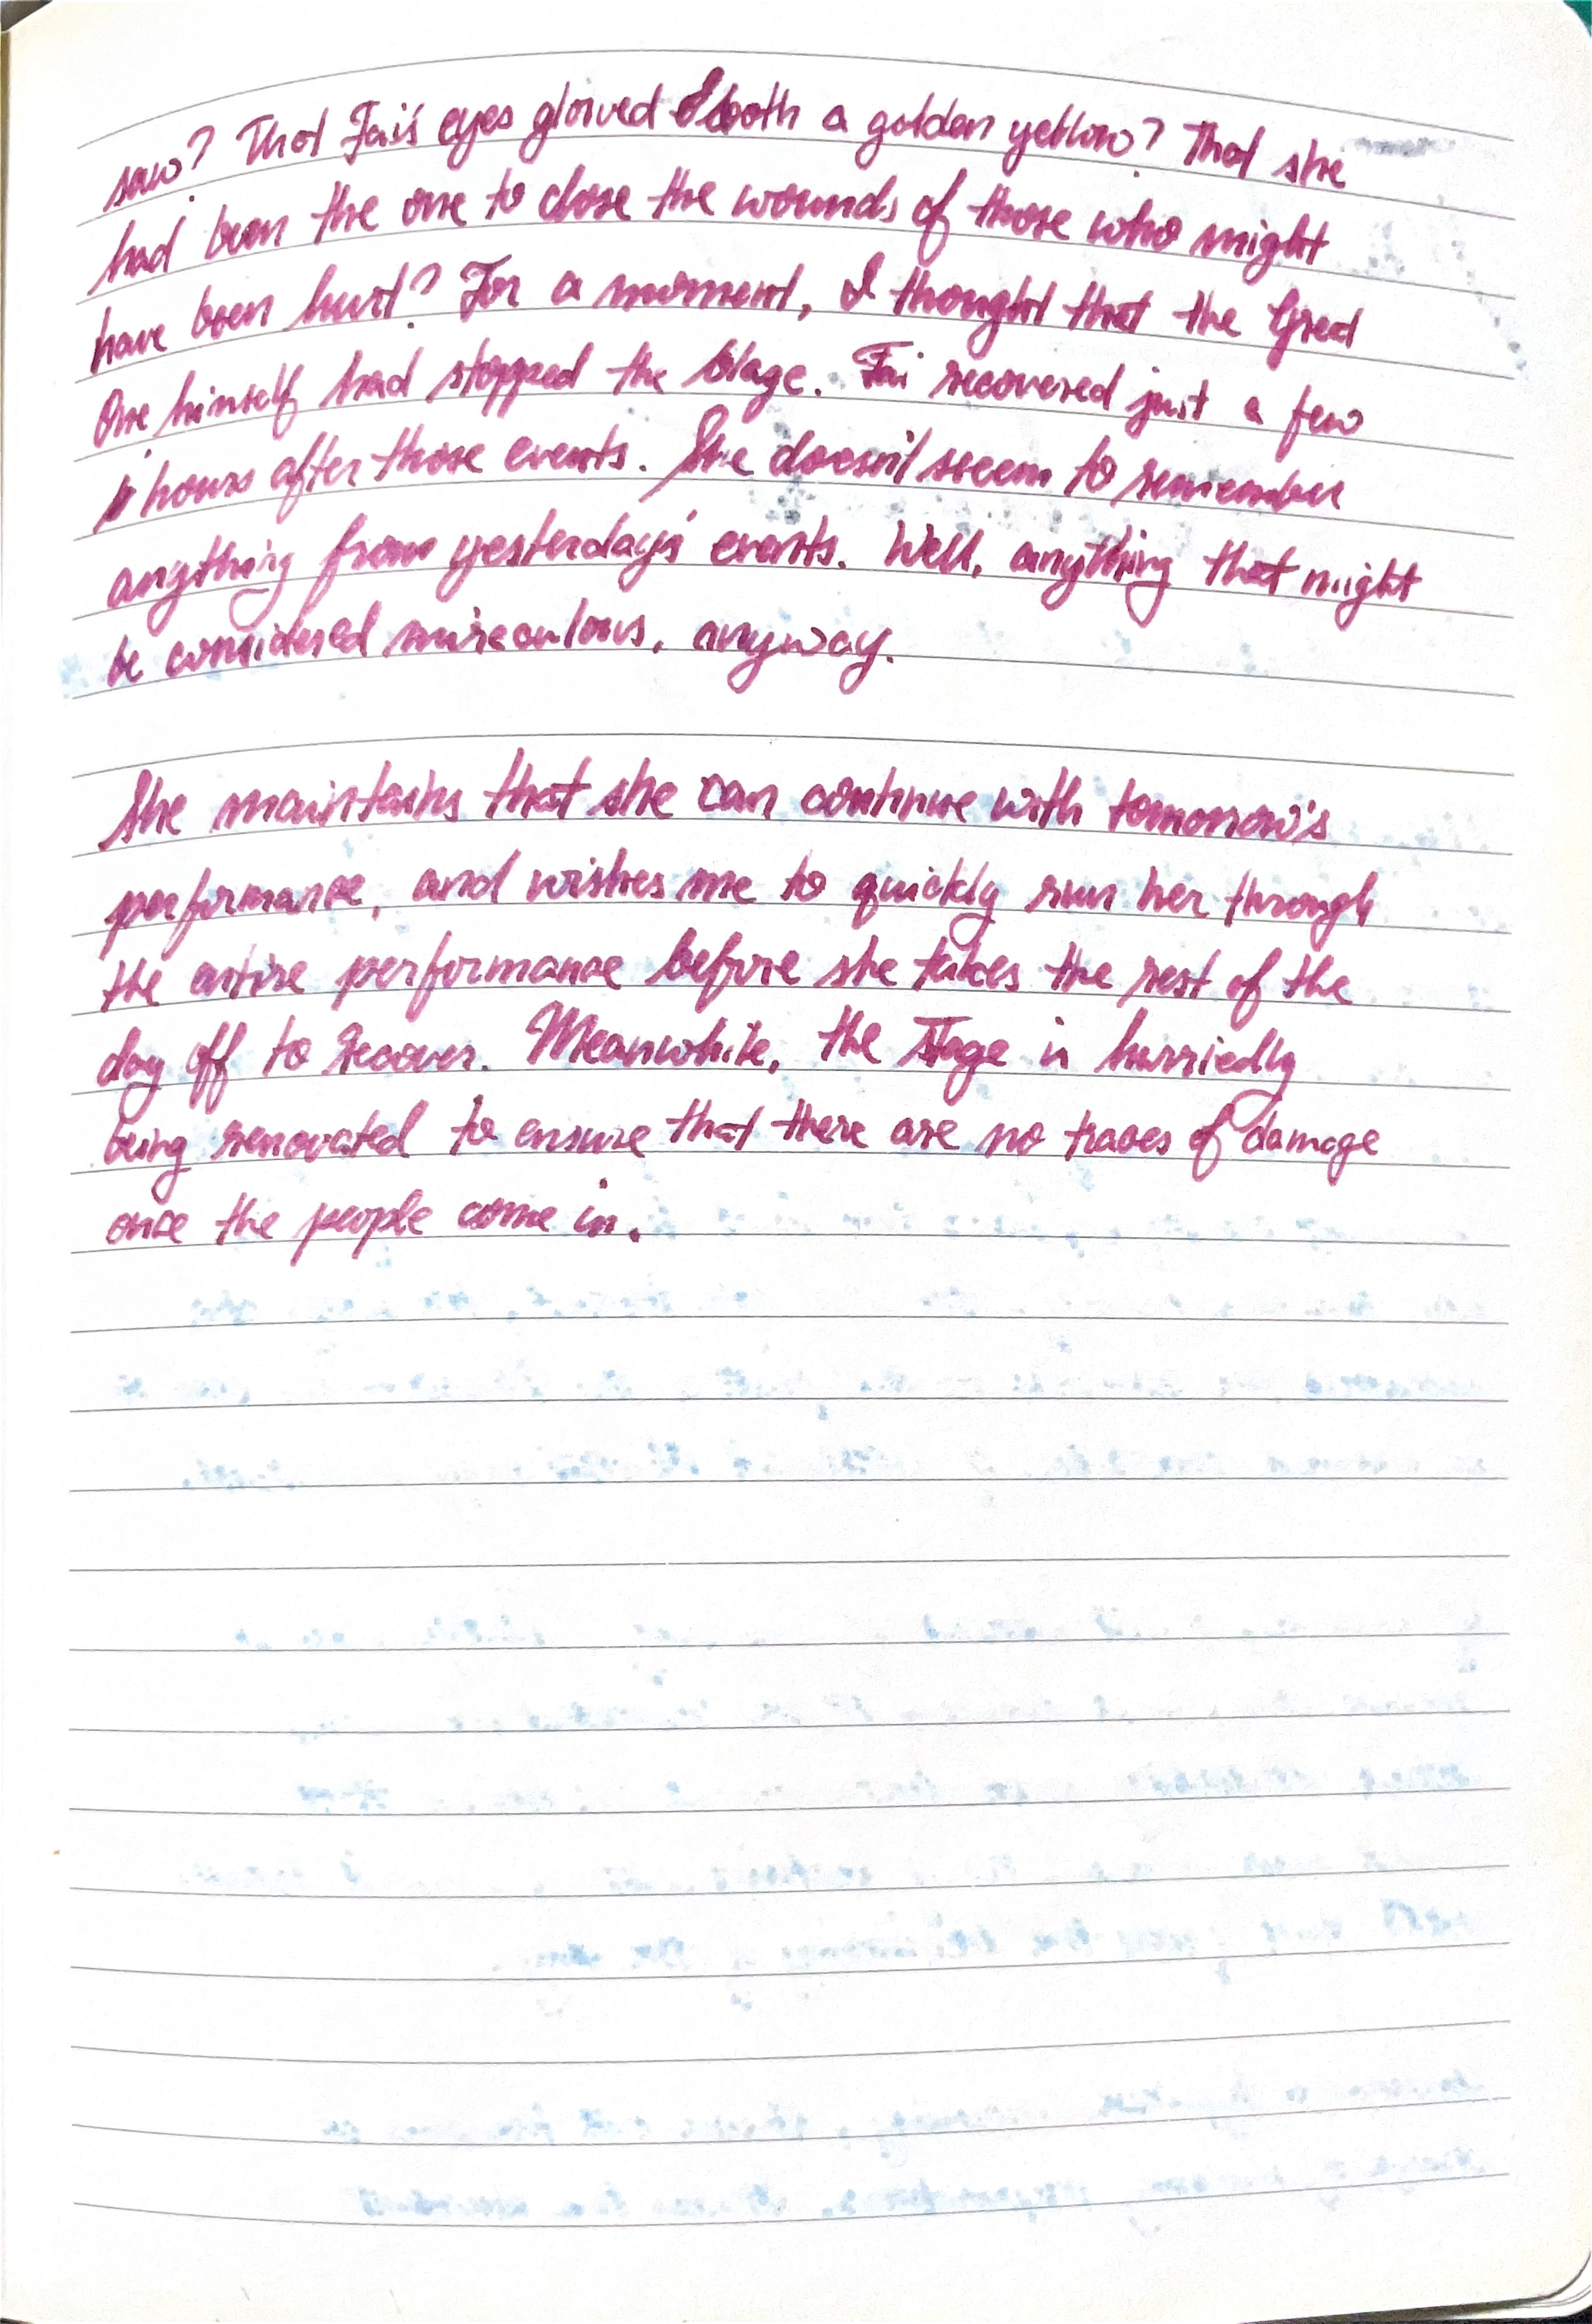 saw? That Fai's eyes glowed both a golden yellow? That she
had been the one to close the wounds of those who might
have been hurt? For a moment, I thought that the Great
One himself had stopped the blaze. Fai recovered just a few
hours after those events. She doesn't seem to remember
anything from yesterday's events. Well, anything that might
be considered miraculous, anyway.
She maintains that she can continue with tomorrow's
performance, and wishes me to quickly run her through
the entire performance before she takes the rest of the
day off to recover. Meanwhile, the stage is hurriedly
being renovated to ensure that there are no traces of damage
once the people come in.